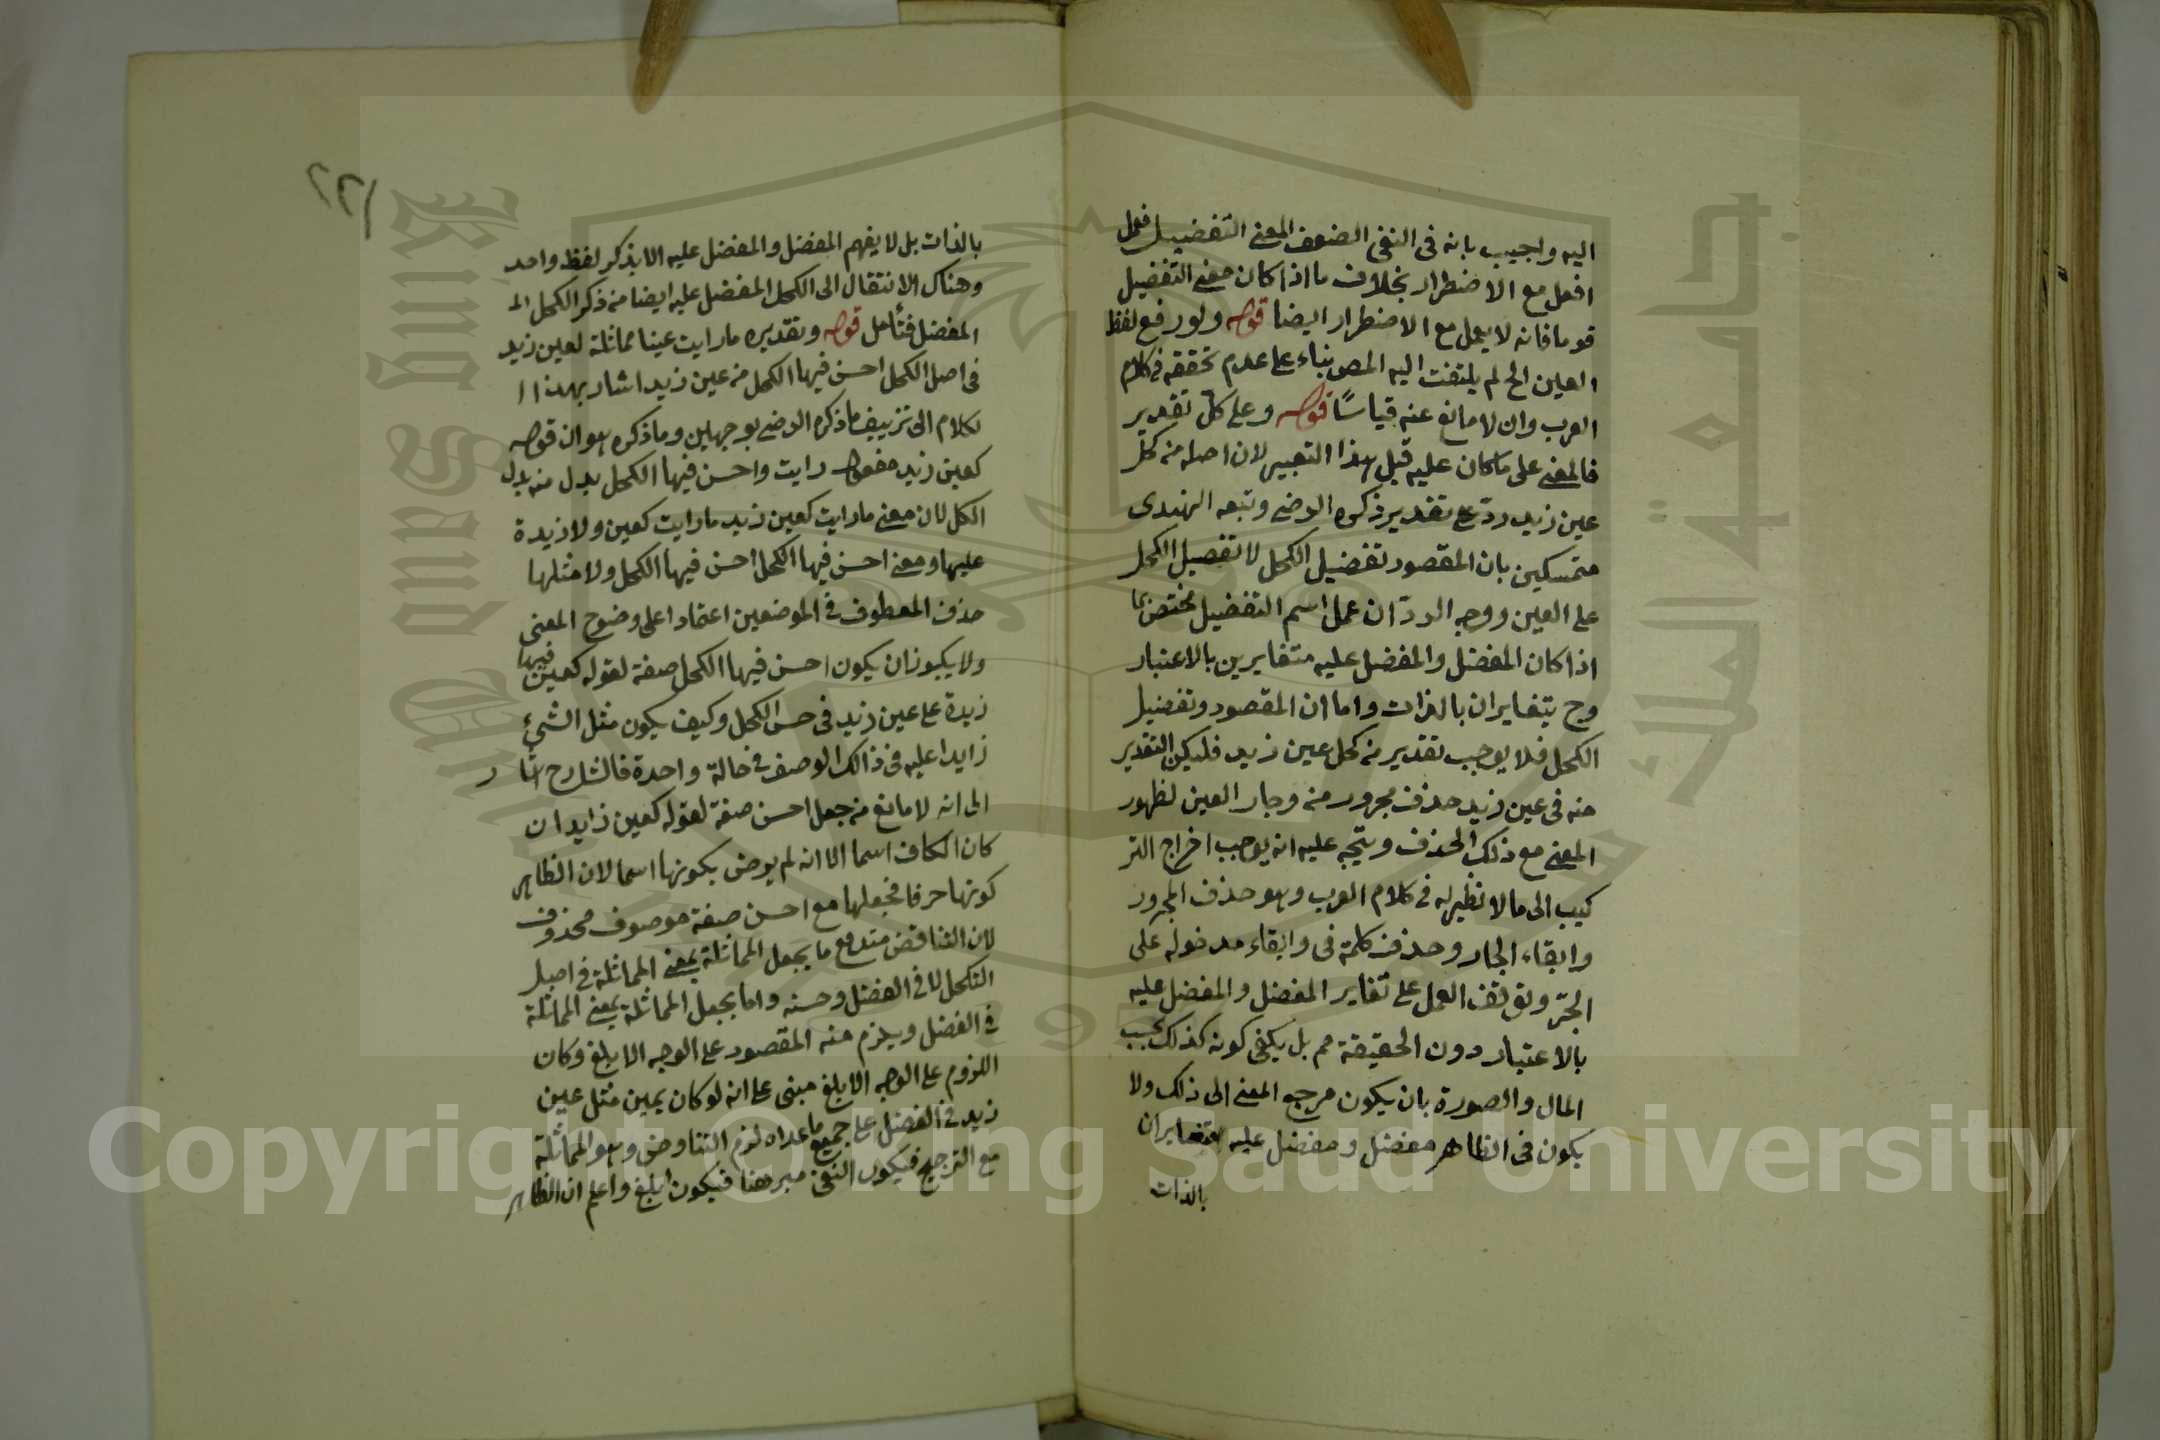 اليه واجيب بانه فى النفى الضعف المعنى التفضيل فعمل
افعل مع الاضطرار بخلاف ما اذا كان معنى التفضيل
قوما فانه لا يعمل مع الاضطرار ايضا قوله ولو رفع لفظ
العين الخ لم يلتفت اليه المص بناء على عدم تحققه فى كلام
العرب وان لا مانع عنه قياسًا قوله وعلى كل تقدير
فالمعنى على ما كان عليه قبل هذا التعبير لان اصله من كحل
عين زيد ردّ على تقدير ذكره الرضى وتبعه الهندى
متمسكين بان المقصود تفضيل الكحل لا تفضيل الكحل
على العين ووجه الردّ ان عمل اسم التفضيل مختص بما
اذا كان المفضل والمفضل عليه متغايرين بالاعتبار
وح يتغايران بالذات واما ان المقصود وتفضيل
الكحل فلا يوجب تقدير من كحل عين زيد فليكن التقدير
منه فى عين زيد حذف مجرور من وجار العين لظهور
المعنى مع ذلك الحذف ويتجه عليه انه يوجب اخراج التر
كيب الى ما لا نظير له فى كلام العرب وهو حذف المجرور
وابقاء الجار وحذف كلمة فى وابقاء مدخوله على
الجرّ وتوقف العمل على تغاير المفضل والمفضل عليه
بالاعتبار دون الحقيقة مم بل يكفى كونه كذلك بحسب
المال والصورة بان يكون مرجع المعنى الى ذلك ولا
يكون فى الظاهر مفضل ومفضل عليه متغايران
بالذات
٢٢١
بالذات بل لا يفهم المفضل والمفضل عليه الا بذكر لفظ واحد
وهناك الانتقال الى الكحل المفضل عليه ايضا من ذكر الكحل الـ
المفضل فتأمل قوله وتقديره ما رايت عينا مماثلة لعين زيد
فى اصل الكحل احسن فيها الكحل من عين زيد اشار بهذا ا
لكلام الى تزييف ما ذكره الرضى بوجهين وما ذكره هو ان قوله
كعين زيد مفعول رايت واحسن فيها الكحل بدل منه بدل
الكل لان معنى ما رايت كعين زيد ما رايت كعين ولا زيدة
عليها ومعنى احسن فيها الكحل احسن فيها الكحل ولا مثلها
حذف المعطوف فى الموضعين اعتمادا على وضوح المعنى
ولا يكبوز ان يكون احسن فيها الكحل صفة لقوله كعين فيها
زيدة على عين زيد فى حسن الكحل وكيف يكون مثل الشئ
زايدا عليه فى ذالك الوصف فى حالة واحدة فالشارح اشا ر
الى انه لا مانع من جعل احسن صفة لقوله كعين زايد ان
كان الكاف اسما الا انه لم يرض بكونها اسما لان الظاهر
كونها حرفا فجعلها مع احسن صفة موصوف محذوف
لان التناقض مندفع ما بجعل المماثلة بمعنى المماثلة فى اصل
التكحل لا فى الفضل وحسنه واما بجعل المماثلة بمعنى المماثلة
فى الفضل ويلزم منه المقصود على الوجه الابلغ وكان
اللزوم على الوجه الابلغ مبنى على انه لو كان يمين مثل عين
زيد فى الفضل على جميع ما عداه لزم التناوض وهو المماثلة
مع الترجيح فيكون النفى مبرهنا فيكون ابلغ واعلم ان الظاهر
King Saud University
جامعة الملك سعود
1957
Copyright © King Saud University